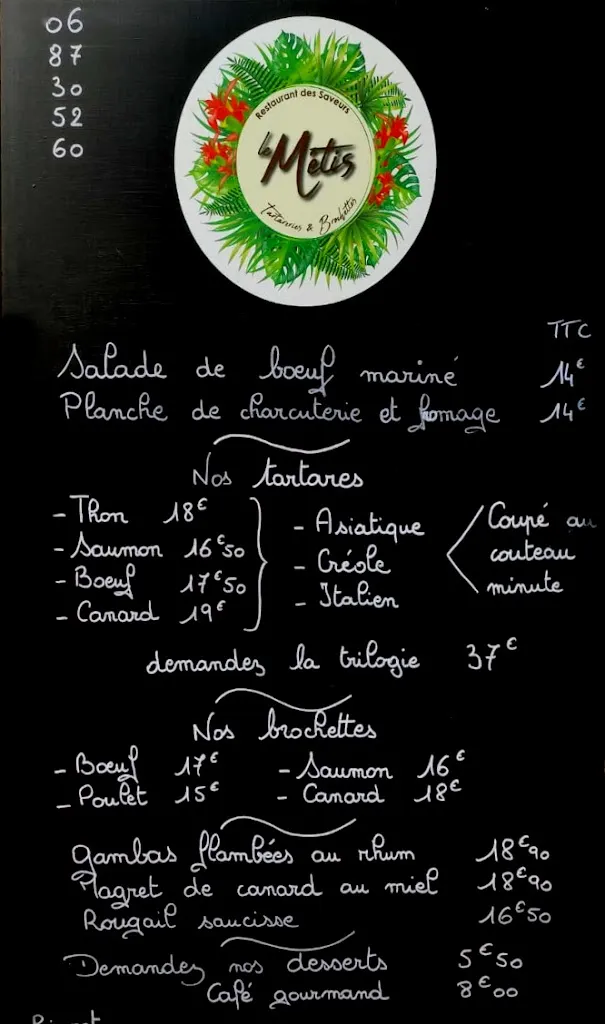 06
87
30
52
60
Restaurant des Saveurs
le Métis
Tartareries & Brochettes
TTC
Salade de boeuf mariné 14€
Planche de charcuterie et fromage 14€
Nos tartares
- Thon 18€
- Saumon 16€50
- Boeuf 17€50
- Canard 19€
- Asiatique
- Créole
- Italien
Coupé au
couteau
minute
demandez la trilogie 37€
Nos brochettes
- Boeuf 17€ - Saumon 16€
- Poulet 15€ - Canard 18€
gambas flambées au rhum 18€90
Magret de canard au miel 18€90
Rougail saucisse 16€50
Demandez nos desserts 5€50
Café gourmand 8€00